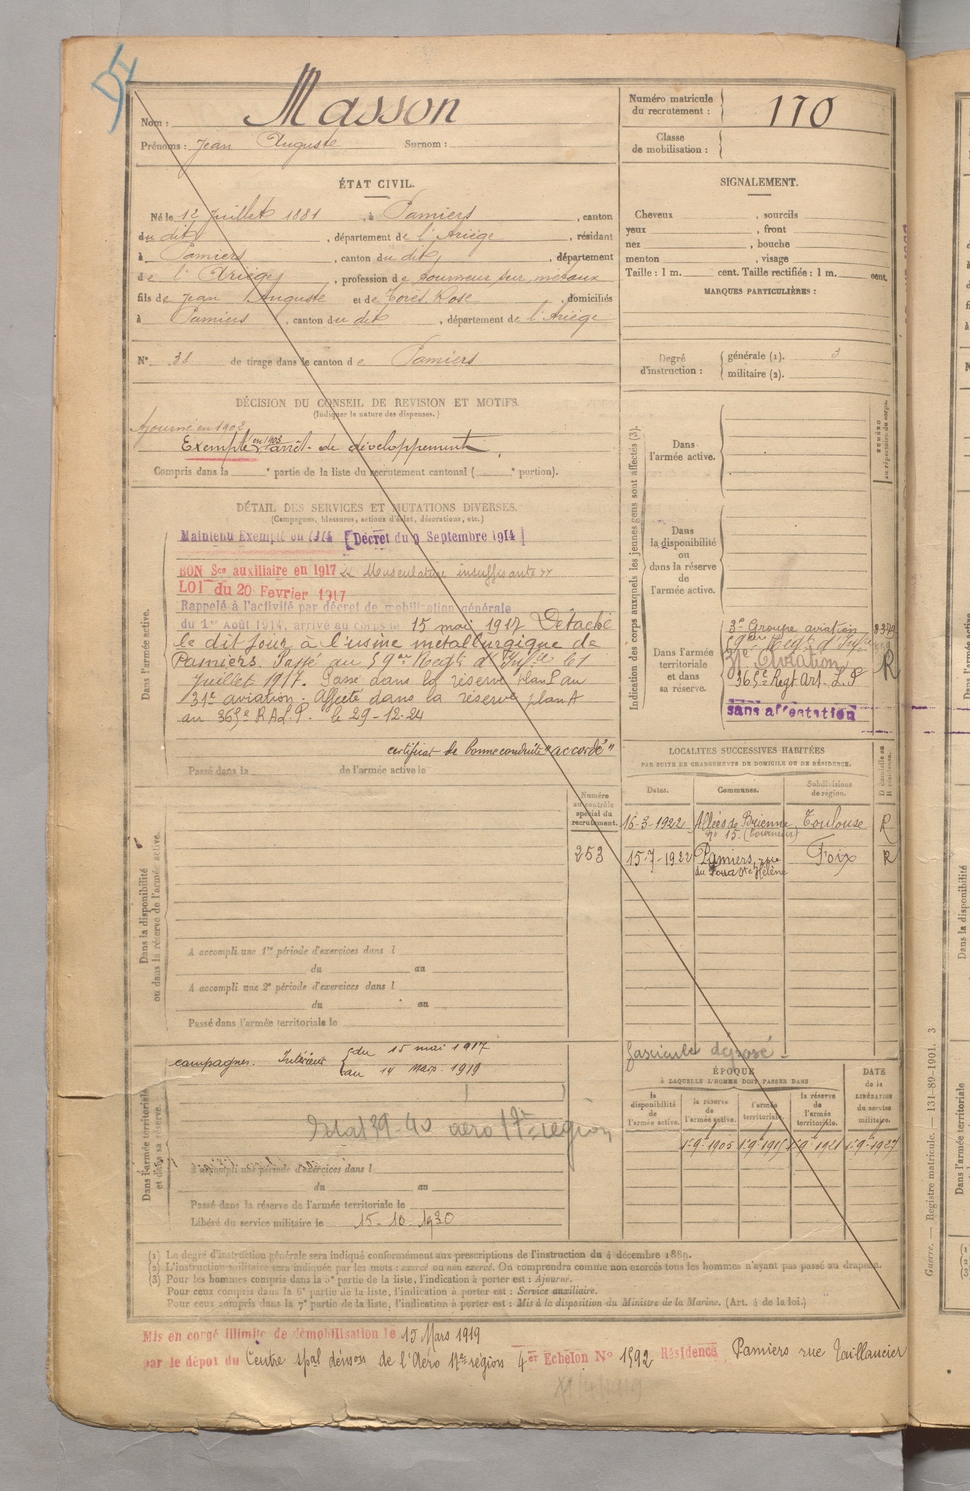 Nom : Masson
Prénoms : Jean Auguste Surnom :
Numéro matricule du recrutement : 170
Classe de mobilisation :
ÉTAT CIVIL.
Né le 12 Juillet 1881, à Pamiers, canton
du dit, département de l'Ariège, résidant
à Pamiers, canton du dit, département
de l'Ariège, profession de tourneur sur métaux
fils de Jean Auguste et de Torès Rose domiciliés
à Pamiers, canton du dit, département de l'Ariège
N° 38 de tirage dans le canton de Pamiers
SIGNALEMENT.
Cheveux , sourcils
yeux , front
nez , bouche
menton , visage
Taille : 1 m. cent. Taille rectifiée : 1 m. cent.
MARQUES PARTICULIÈRES :
Degré d'instruction : générale (1). 3
militaire (2).
DÉCISION DU CONSEIL DE REVISION ET MOTIFS.
(Indiquer la nature des dispenses.)
Ajourné en 1902
Exempté en 1903 arrêt de développement.
Compris dans la e partie de la liste du recrutement cantonal ( e portion).
DÉTAIL DES SERVICES ET MUTATIONS DIVERSES.
(Campagnes, blessures, actions d'éclat, décorations, etc.)
Dans l'armée active.
Maintenu Exempté en 1914 [Décret du 9 Septembre 1914]
BON Sce auxiliaire en 1917 Musculature insuffisante
LOI du 20 Fevrier 1917
Rappelé à l'activité par décret de mobilisation générale
du 1er Août 1914, arrivé au corps le 15 mai 1917 Détaché
le dit jour à l'usine métallurgique de
Pamiers. Passé au 59me Regt d'Infie le 1
Juillet 1917. Passé dans la réserve plan P au
31e aviation. Affecté dans la réserve plan A
au 365e R.A.L.P. le 29-12-24
certificat de bonne conduite "accordé"
Passé dans la de l'armée active le
Indication des corps auxquels les jeunes gens sont affectés (3).
NUMÉRO au répertoire du corps.
Dans l'armée active.
Dans la disponibilité ou dans la réserve de l'armée active.
Dans l'armée territoriale et dans sa réserve.
3e Groupe aviation
59me Regt d'Infie
31e Aviation R
365e Regt Art. L.P
sans affectation
LOCALITES SUCCESSIVES HABITÉES
PAR SUITE DE CHANGEMENTS DE DOMICILE OU DE RÉSIDENCE.
Dates. Communes. Subdivisions de région. D domicile ou R résidence.
16-3-1922 Allées de Brienne, n° 15 Toulouse R
15-7-1922 Pamiers, rue du Ste Hélène Foix R
Numéro au contrôle spécial du recrutement.
253
Dans la disponibilité ou dans la réserve de l'armée active.
A accompli une 1re période d'exercices dans l
du au
A accompli une 2e période d'exercices dans l
du au
Passé dans l'armée territoriale le
Dans l'armée territoriale et dans sa réserve.
campagnes. Intérieur du 15 mai 1917
au 14 Mars 1919
39-40 aéro 17e région
A accompli une période d'exercices dans l
du au
Passé dans la réserve de l'armée territoriale le
Libéré du service militaire le 15-10-1930
fascicule déposé
ÉPOQUE
À LAQUELLE L'HOMME DOIT PASSER DANS
la disponibilité de l'armée active. la réserve de l'armée active. l'armée territoriale. la réserve de l'armée territoriale.
DATE de la LIBÉRATION du service militaire.
1-9-1905 1-9-1915 1-9-1921 1-9-1927
(1) Le degré d'instruction générale sera indiqué conformément aux prescriptions de l'instruction du 4 décembre 1889.
(2) L'instruction militaire sera indiquée par les mots : exercé ou non exercé. On comprendra comme non exercés tous les hommes n'ayant pas passé au drapeau.
(3) Pour les hommes compris dans la 5e partie de la liste, l'indication à porter est : Ajourné.
Pour ceux compris dans la 6e partie de la liste, l'indication à porter est : Service auxiliaire.
Pour ceux compris dans la 7e partie de la liste, l'indication à porter est : Mis à la disposition du Ministre de la Marine. (Art. 4 de la loi.)
Mis en congé illimité de démobilisation le 15 Mars 1919
par le dépôt du Centre spal démon de l'Aéro 17e région 4er Echelon N° 1592 Résidence Pamiers rue Taillancier
Guerre. — Registre matricule. — 131-89-1901. 3